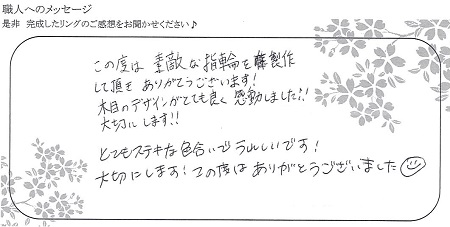 職人へのメッセージ
是非 完成したリングのご感想をお聞かせください♪
この度は 素敵な指輪を製作
して頂き ありがとうございます!
木目のデザインがとても良く 感動しました!!
大切にします!!
とてもステキな色合いで うれしいです!
大切にします!この度は ありがとうございました